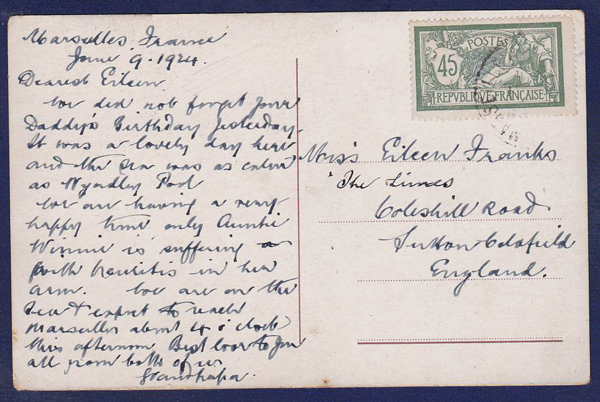 Marselles France
June 9 - 1924.
Dearest Eileen
We did not forget your
Daddy's Birthday yesterday.
It was a lovely day here
and the sea was as calm
as Wyndley Pool
We are having a very
happy time only Auntie
Winnie is suffering
with neuritis in her
arm. We are on the
Sea & expect to reach
Marselles about 4 o'clock
this afternoon Best love to you
all from both of us
Grandpapa.
POSTES
45
REPVBLIQVE FRANÇAISE
Miss Eileen Franks
"The Limes
Coleshill Road
Sutton Coldfield
England.